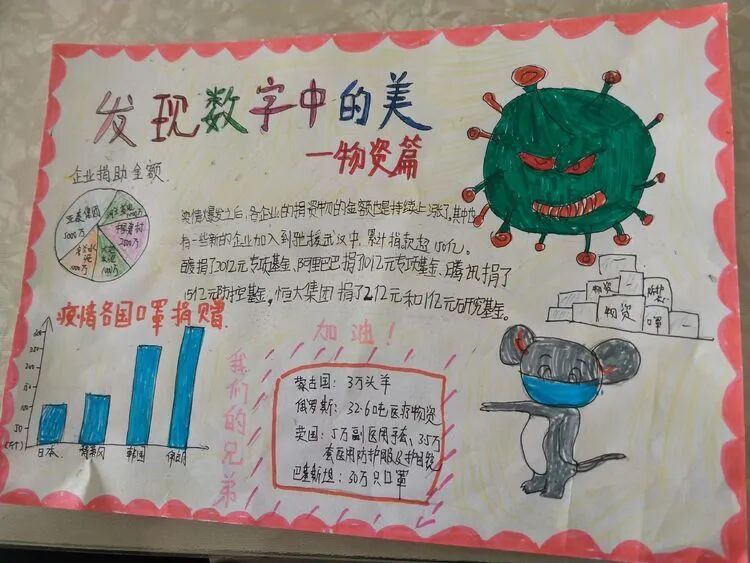 发现数字中的美
—物资篇
企业捐助金额
亚泰集团
5000万
疫情爆发之后,各企业的捐资物的金额也是持续上涨了,其中也
有一些新的企业加入到驰援武汉中,累计捐款超
捐了20亿元专项基金,阿里巴巴捐10亿元专项基金,腾讯捐了
15亿元防控基金,恒大集团捐了2亿元和1亿元研究基金。
疫情各国口罩捐赠
(万个)
日本
韩国
伊朗
加油!
我们的兄弟
蒙古国:3万头羊
俄罗斯:32.6吨医疗物资
英国:5万副医用手套、3.5万
套医用防护服&护目镜
巴基斯坦:30万只口罩
物资
物资
口罩